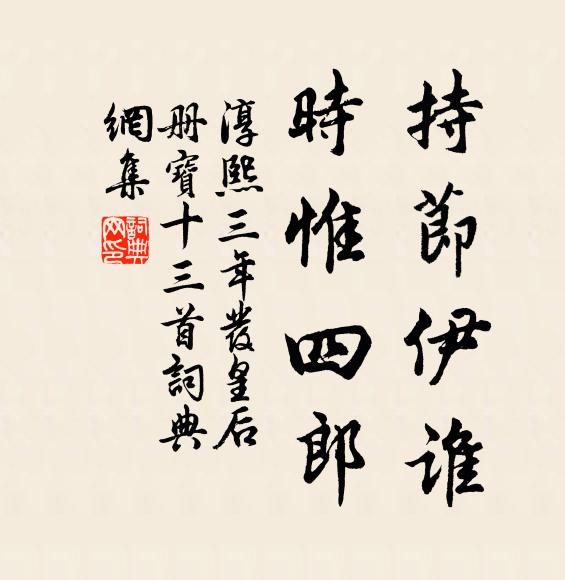 持節伊谁
時惟四郎
淳熙三年發皇后
册寶十三首詞典
網集
詞典網印